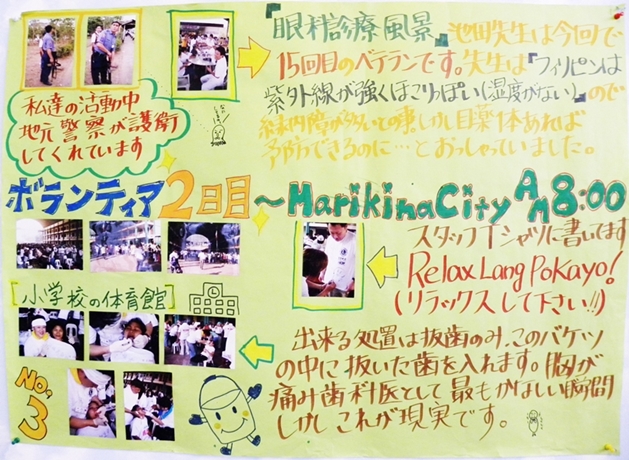 『眼科診療風景』池田先生は今回で
15回目のベテランです。先生は『フィリピンは
紫外線が強くほこりっぽい(湿度がない)』ので
結膜内障が多いとの事。しかし目薬1本あれば
予防できるのに…とおっしゃっていました。
私達の活動中
地元警察が護衛
してくれています
ボランティア2日目～Marikina City AM8:00
スタッフTシャツに書いてます
Relax Lang Pokayo!
(リラックスして下さい!!)
[小学校の体育館]
出来る処置は抜歯のみ、このバケツ
の中に抜いた歯を入れます。胸が
痛み歯科医として最もかなしい瞬間
しかしこれが現実です。
No.3